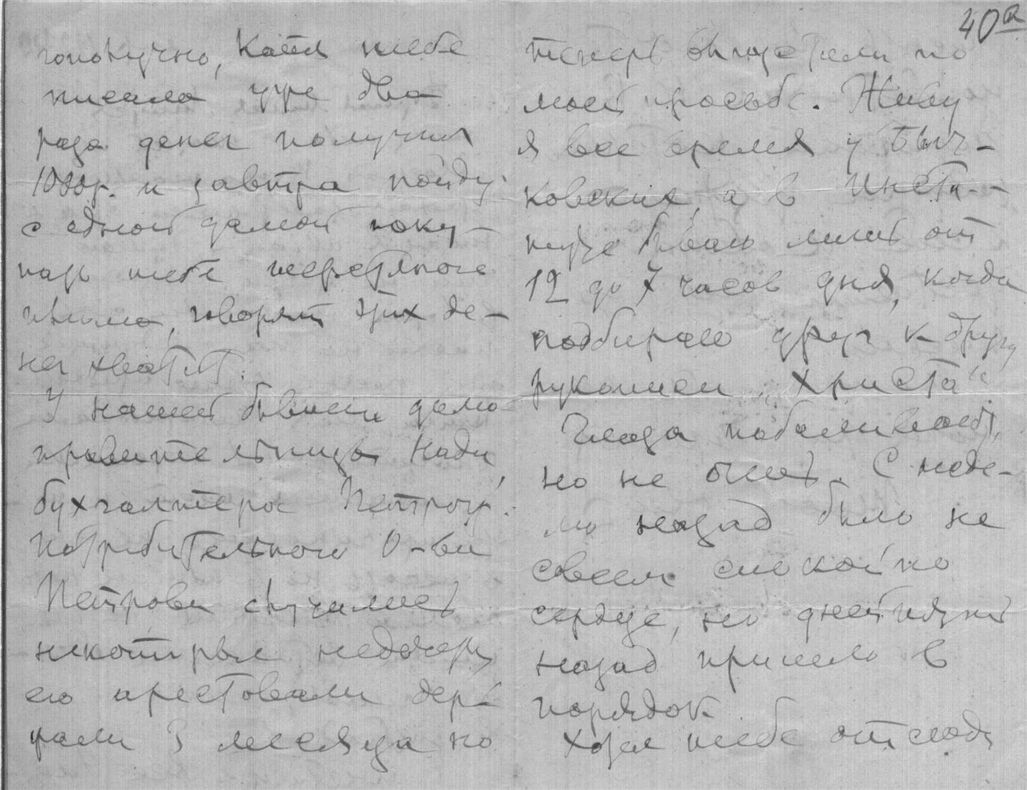 гополучно, Катя тебе
писала уже два
раза денег получил
1000р. и завтра пойду
с одной дамой поку-
пать тебе шерстяное
говорят этих де-
нег хватит.
У нашей бывшей домо-
правительницы Нади
бухгалтера Петрогр.
Потребительного О-ва
Петрова случились
некоторые недочеты
его арестовали дер-
жали 3 месяца но
40а
теперь выпустили по
моей просьбе. Живу
я все время у Быч-
ковских, а в Инсти-
туте бываю лишь от
12 до 7 часов дня, когда
подбираю друг к другу
рукописи „Христа“
Глаза побаливают,
но не очень. С неде-
лю назад было не
совсем спокойно
сердце, но дней пять
назад пришло в
порядок.
Хотел тебе отсюда